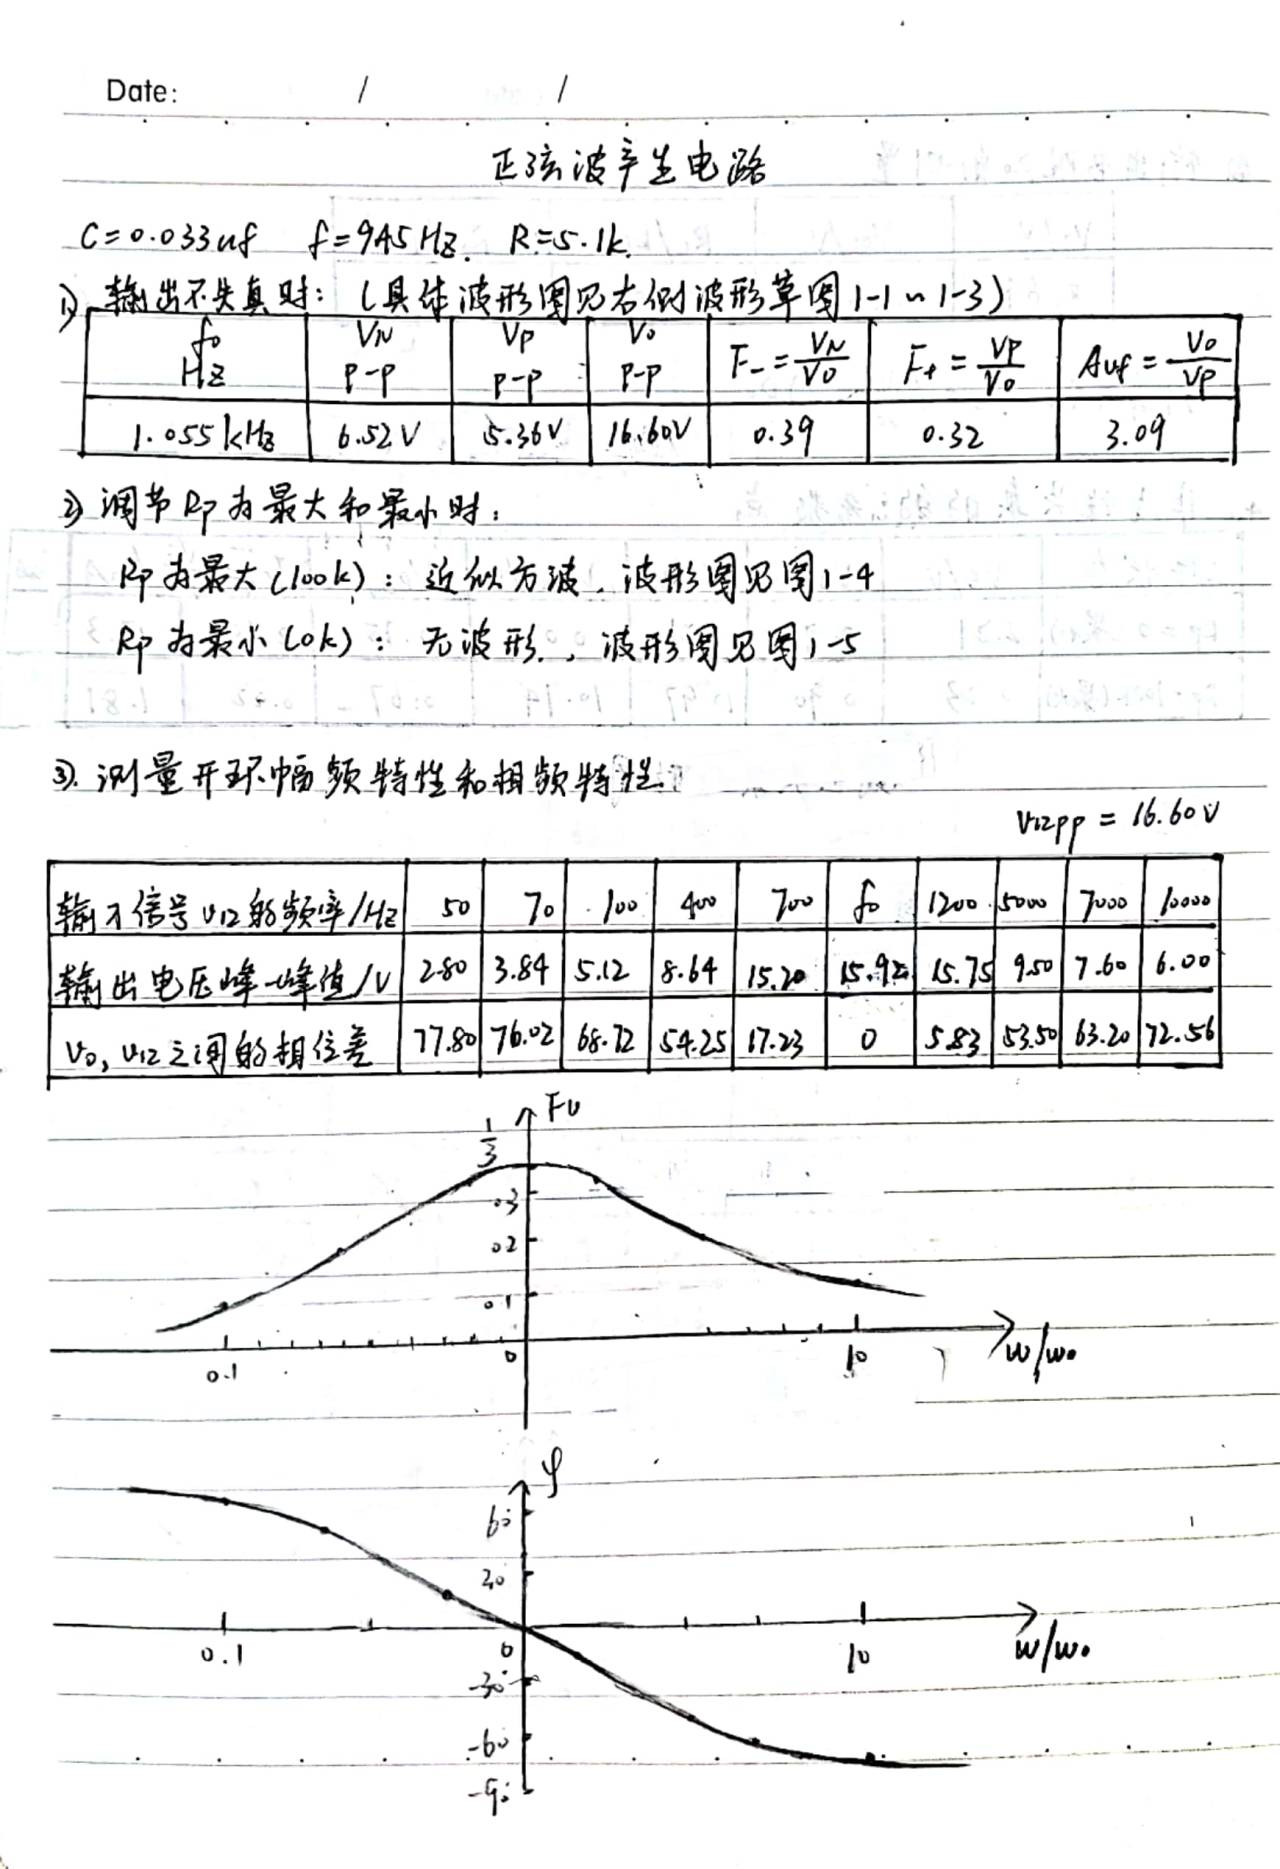 Date: / /
正弦波产生电路
C=0.033uf f=945Hz. R=5.1k.
1) 输出不失真时: (具体波形图见右侧波形草图1-1~1-3)
f₀ Hz V_N P-P V_P P-P V₀ P-P F₋=V_N/V₀ F₊=V_P/V₀ Auf=V₀/V_P
1.055kHz 6.52V 5.36V 16.60V 0.39 0.32 3.09
2) 调节Rp为最大和最小时:
Rp为最大(100k): 近似方波. 波形图见图1-4
Rp为最小(0k): 无波形., 波形图见图1-5
3). 测量开环幅频特性和相频特性.
v12pp = 16.60V
输入信号v12的频率/Hz 50 70 100 400 700 f₀ 1200 5000 7000 10000
输出电压峰-峰值/V 2.80 3.84 5.12 8.64 15.20 15.92 15.75 9.50 7.60 6.00
v₀, v12之间的相位差 77.80 76.02 68.72 54.25 17.23 0 5.83 53.50 63.20 72.56
Fu
1/3
0.3
0.2
0.1
0.1 0 10 w/w₀
φ
60°
30°
0.1 0 10 w/w₀
-30°
-60°
-90°